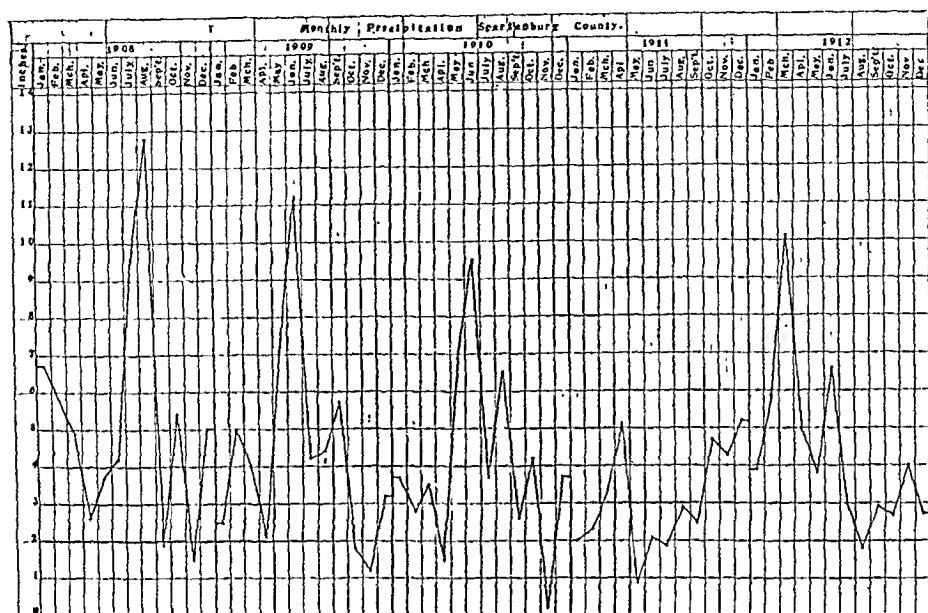 Monthly Precipitation Spartanburg County.
1908 1909 1910 1911 1912
Inches Jan. Feb. Mch. Apl. May. Jun. July Aug. Sep't. Oct. Nov. Dec. Jan. Feb Mch. Apl. May Jun. July. Aug. Sep't. Oct. Nov. Dec. Jan. Feb. Mch Apl. May. Jun July Aug. Sep't. Oct. Nov. Dec. Jan. Feb. Mch. Apl. May. Jun July Aug. Sep't. Oct. Nov. Dec. Jan. Feb Mch. Apl. May. Jun. July Aug. Sep't Oct. Nov Dec
14
13
12
11
10
9
8
7
6
5
4
3
2
1
0